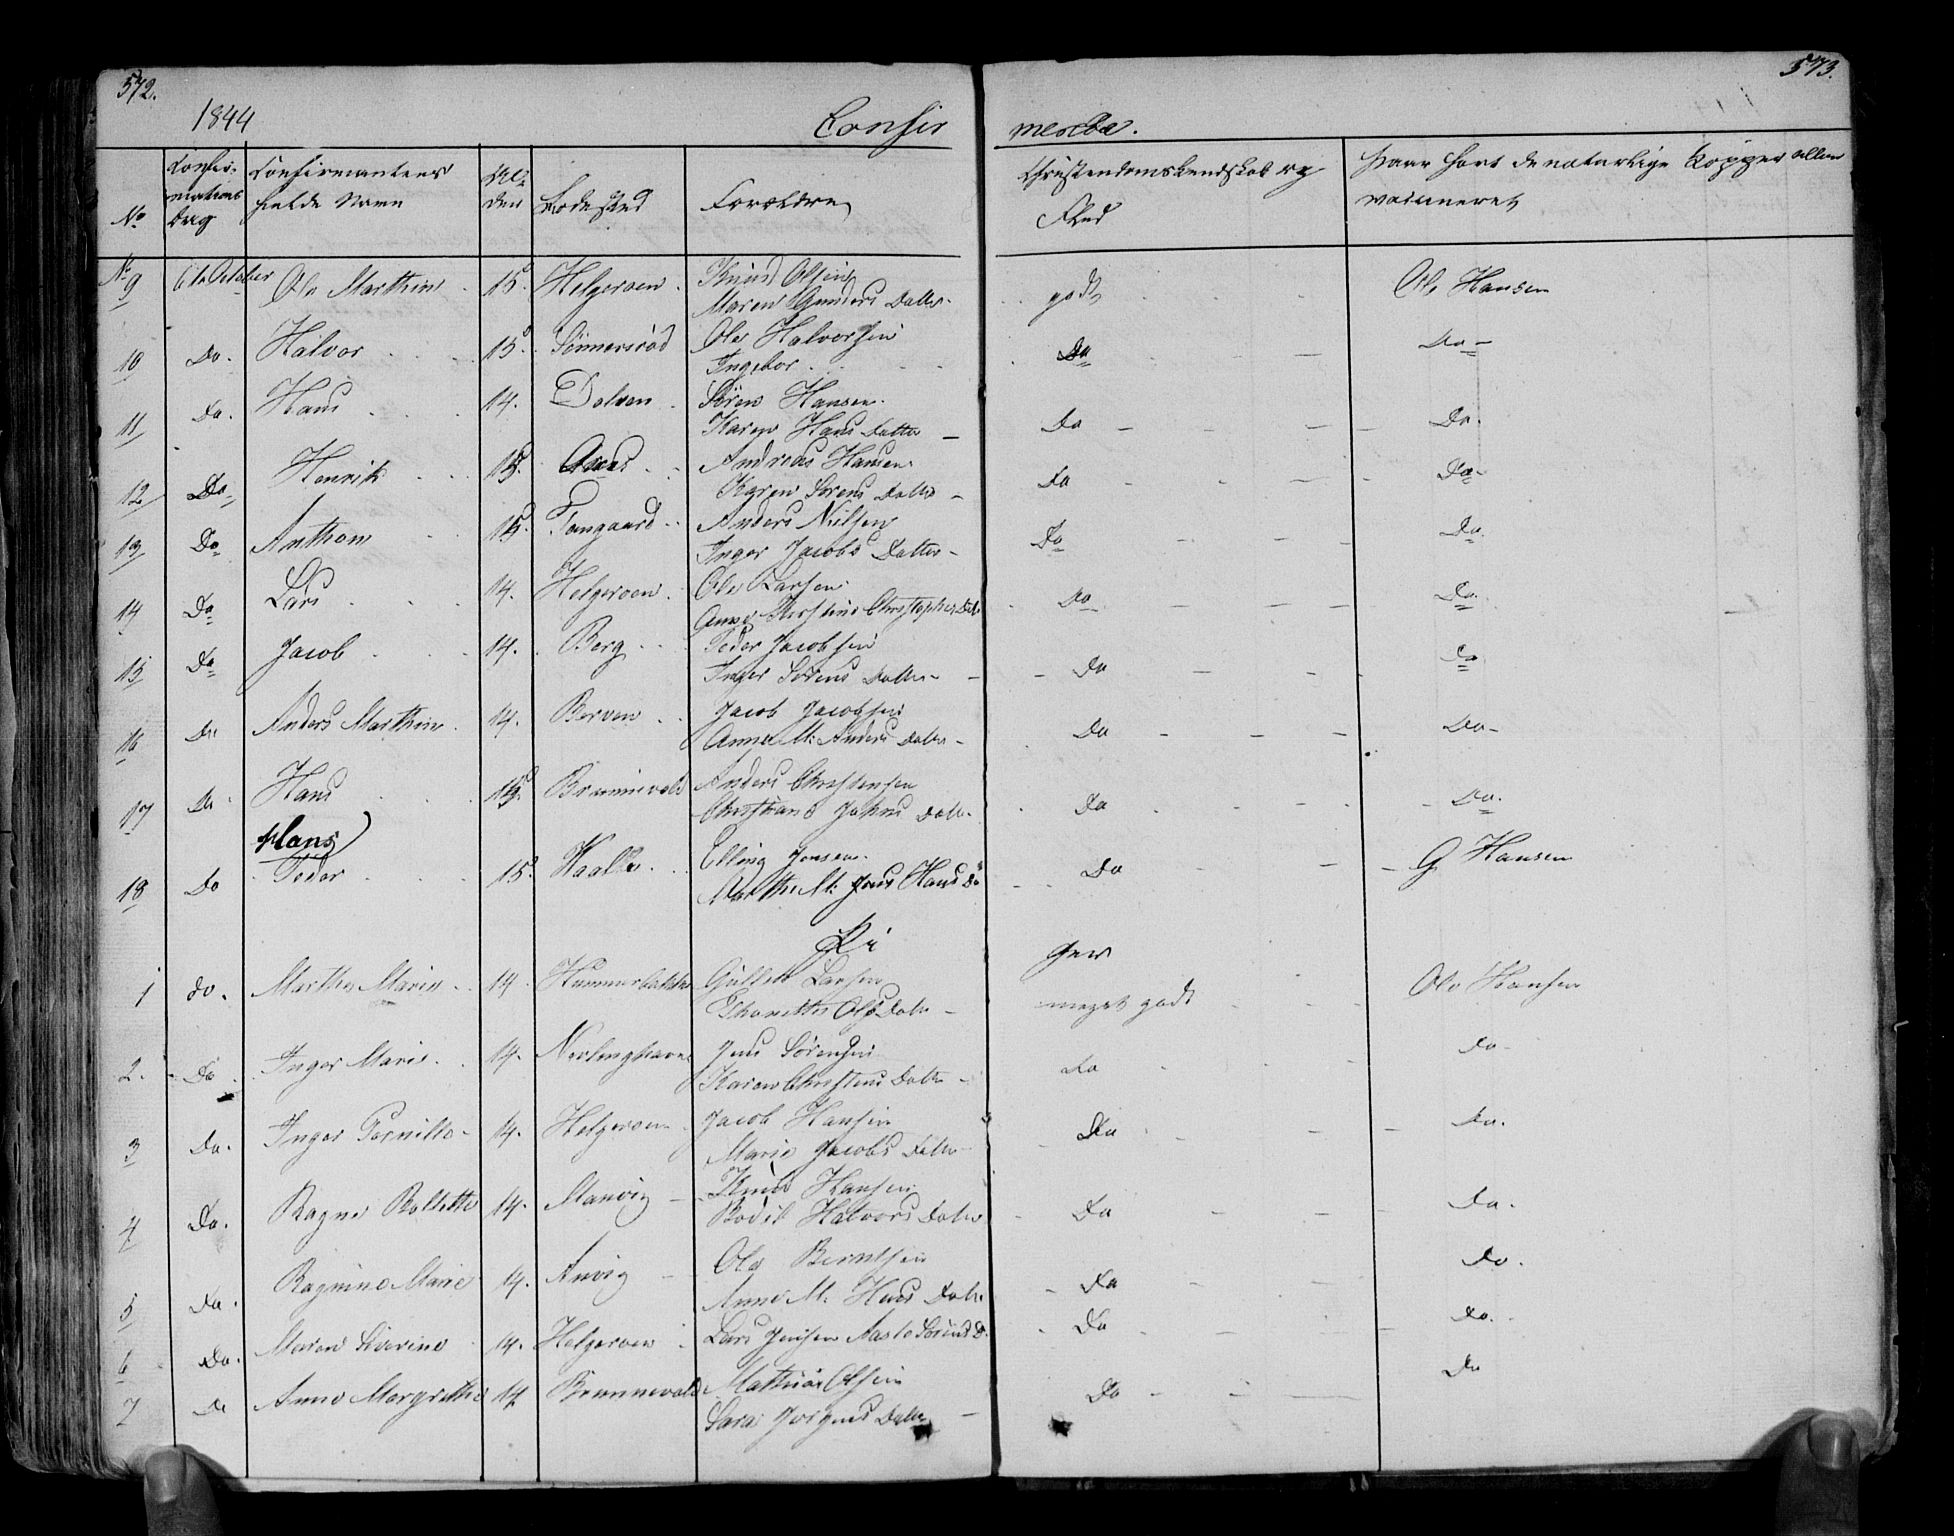 572.
573.
1844
Confir
merede.
No
Confir-
mations
Dag
Confirmantens
fulde Navn
Al-
der
Fødested
Forældre
Christendomskundskab og
Flid
Haar havt de naturlige Kopper eller
vaccineret
No 9 6te October Ole Marthin 15. Helgeroen Knud Olsen godt Ole Hansen
Maren Gunders Datter
10 Do. Halvor 15. Sønnersröd Ole Halvorsen Do Do
Ingebor
11 Do. Hans 14. Dolven Sören Hansen Do Do.
Karen Hans Datter
12 Do Henrik 15. Aaus Andreas Hansen Do Do
Karen Sörens Datter
13 Do Anthon 15. Fangaard Anders Nielsen Do Do.
Inger Jacobs Datter
14 Do Lars 14. Helgeroen Ole Larsen Do Do
Anne Kirstine Christophers Datt
15 Do Jacob 14. Berg Peder Jacobsen Do Do
Inger Sörens Datter
16 Do Anders Marthin 14. Berven Jacob Jacobsen Do Do
Anne M: Anders Datter
17 Do Hans 15. Brunnevold Anders Christensen Do Do.
Christiane Johns Datt.
Hans
18 Do Peder 15. Haalle Elling Jensen Do G Hansen
Marthe M: Jens Hans Da
Pi
ger
1 do. Marthe Marie 14 Hummerbakken Gullik Larsen meget godt Ole Hansen
Thorethe Ols Datter
2. Do Inger Marie 14. Nevlunghavn Jens Sörensen do do
Karen Christens Datter
3 Do. Inger Pernille 14. Helgeroen Jacob Hansen Do Do.
Marie Jacobs Datter
4 Do. Ragne Bollette 14. Manvig Knud Hansen Do Do.
Bodil Halvors Datter
5 Do. Ragnine Marie 14. Anvig Ole Berntsen Do Do.
Anne M: Hans Datter
6 Do. Maren Severine 14. Helgeroen Lars Jensen Aaste Sörens D. Do Do.
7 Do Anne Margrethe 14 Brunnevold Mathias Olsen Do Do
Sara Jörgens Datter